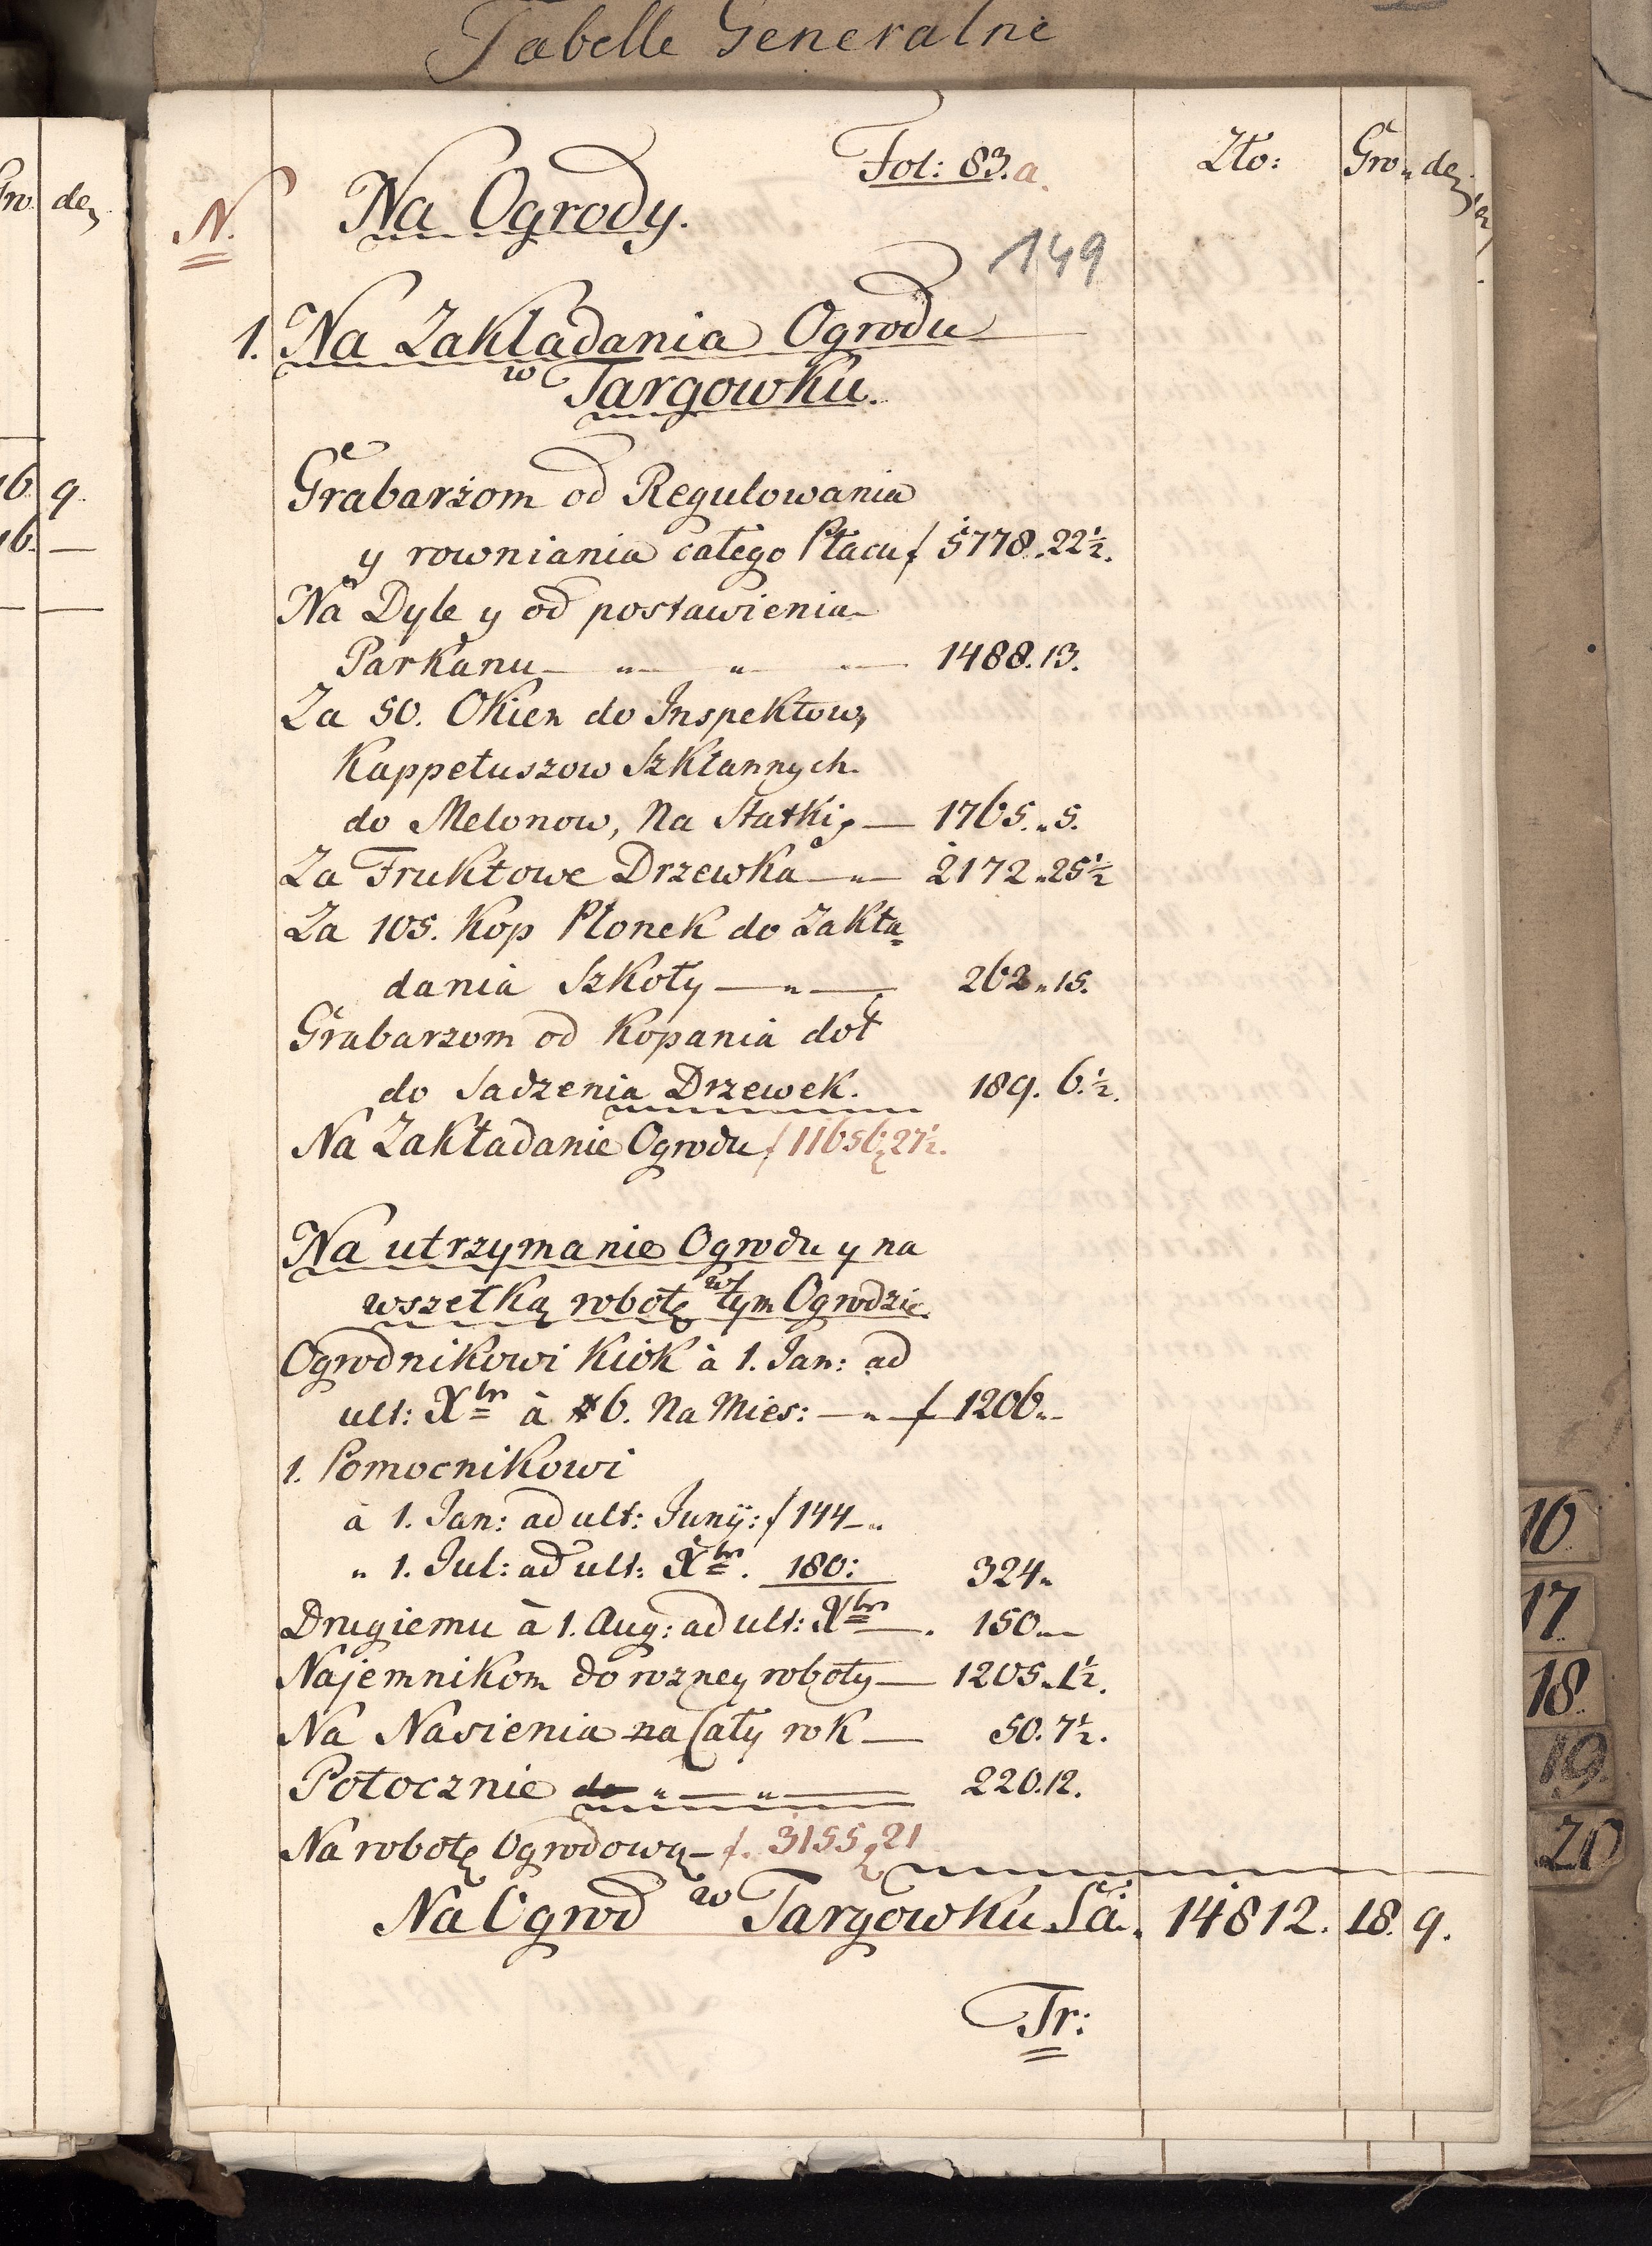 Tabelle Generalne
Fol: 83.a.
Zło: Gro„ de
Gro. de
N.
Na Ogrody.
149
1. Na Zakladania Ogrodu
w Targowku.
Grabarzom od Regulowania
y rowniania całego Płacu f 5778„22½.
Na Dyle y od postawienia
Parkanu — „ — „ — 1488.13.
Za 50. Okien do Inspektow,
Kappeluszow Szklannych
do Melonow, Na Statki, — 1765.„5.
Za Fruktowe Drzewka — „ — 2172„25½
Za 105. Kop Płonek do Zakła=
dania Szkoły — „ — 262„15.
Grabarzom od Kopania doł
do Sadzenia Drzewek. 189. 6.½.
Na Zakładanie Ogrodu f 11656„27½.
Na utrzymanie Ogrodu y na
wszelką robotę w tym Ogrodzie.
Ogrodnikowi Kiok à 1. Jan: ad
ult: Xbr à # 6. Na Mies: — „ — f 1206„—
1. Pomocnikowi
à 1. Jan: ad ult: Junÿ: f 144—„
„ 1. Jul: ad ult: Xbr. 180: 324„
Drugiemu à 1. Aug: ad ult: Xbr —. 150„—
Najemnikom do rozney roboty — 1205„1½.
Na Nasienia na Cały rok — 50.7½.
Potocznie do „ — „ — 220.12.
Na robotę Ogrodową — f. 3155„21
Na Ogrod w Targowku Sa. 14812. 18. 9.
Tr:
16. 9.
16. —
16
17
18
19.
20